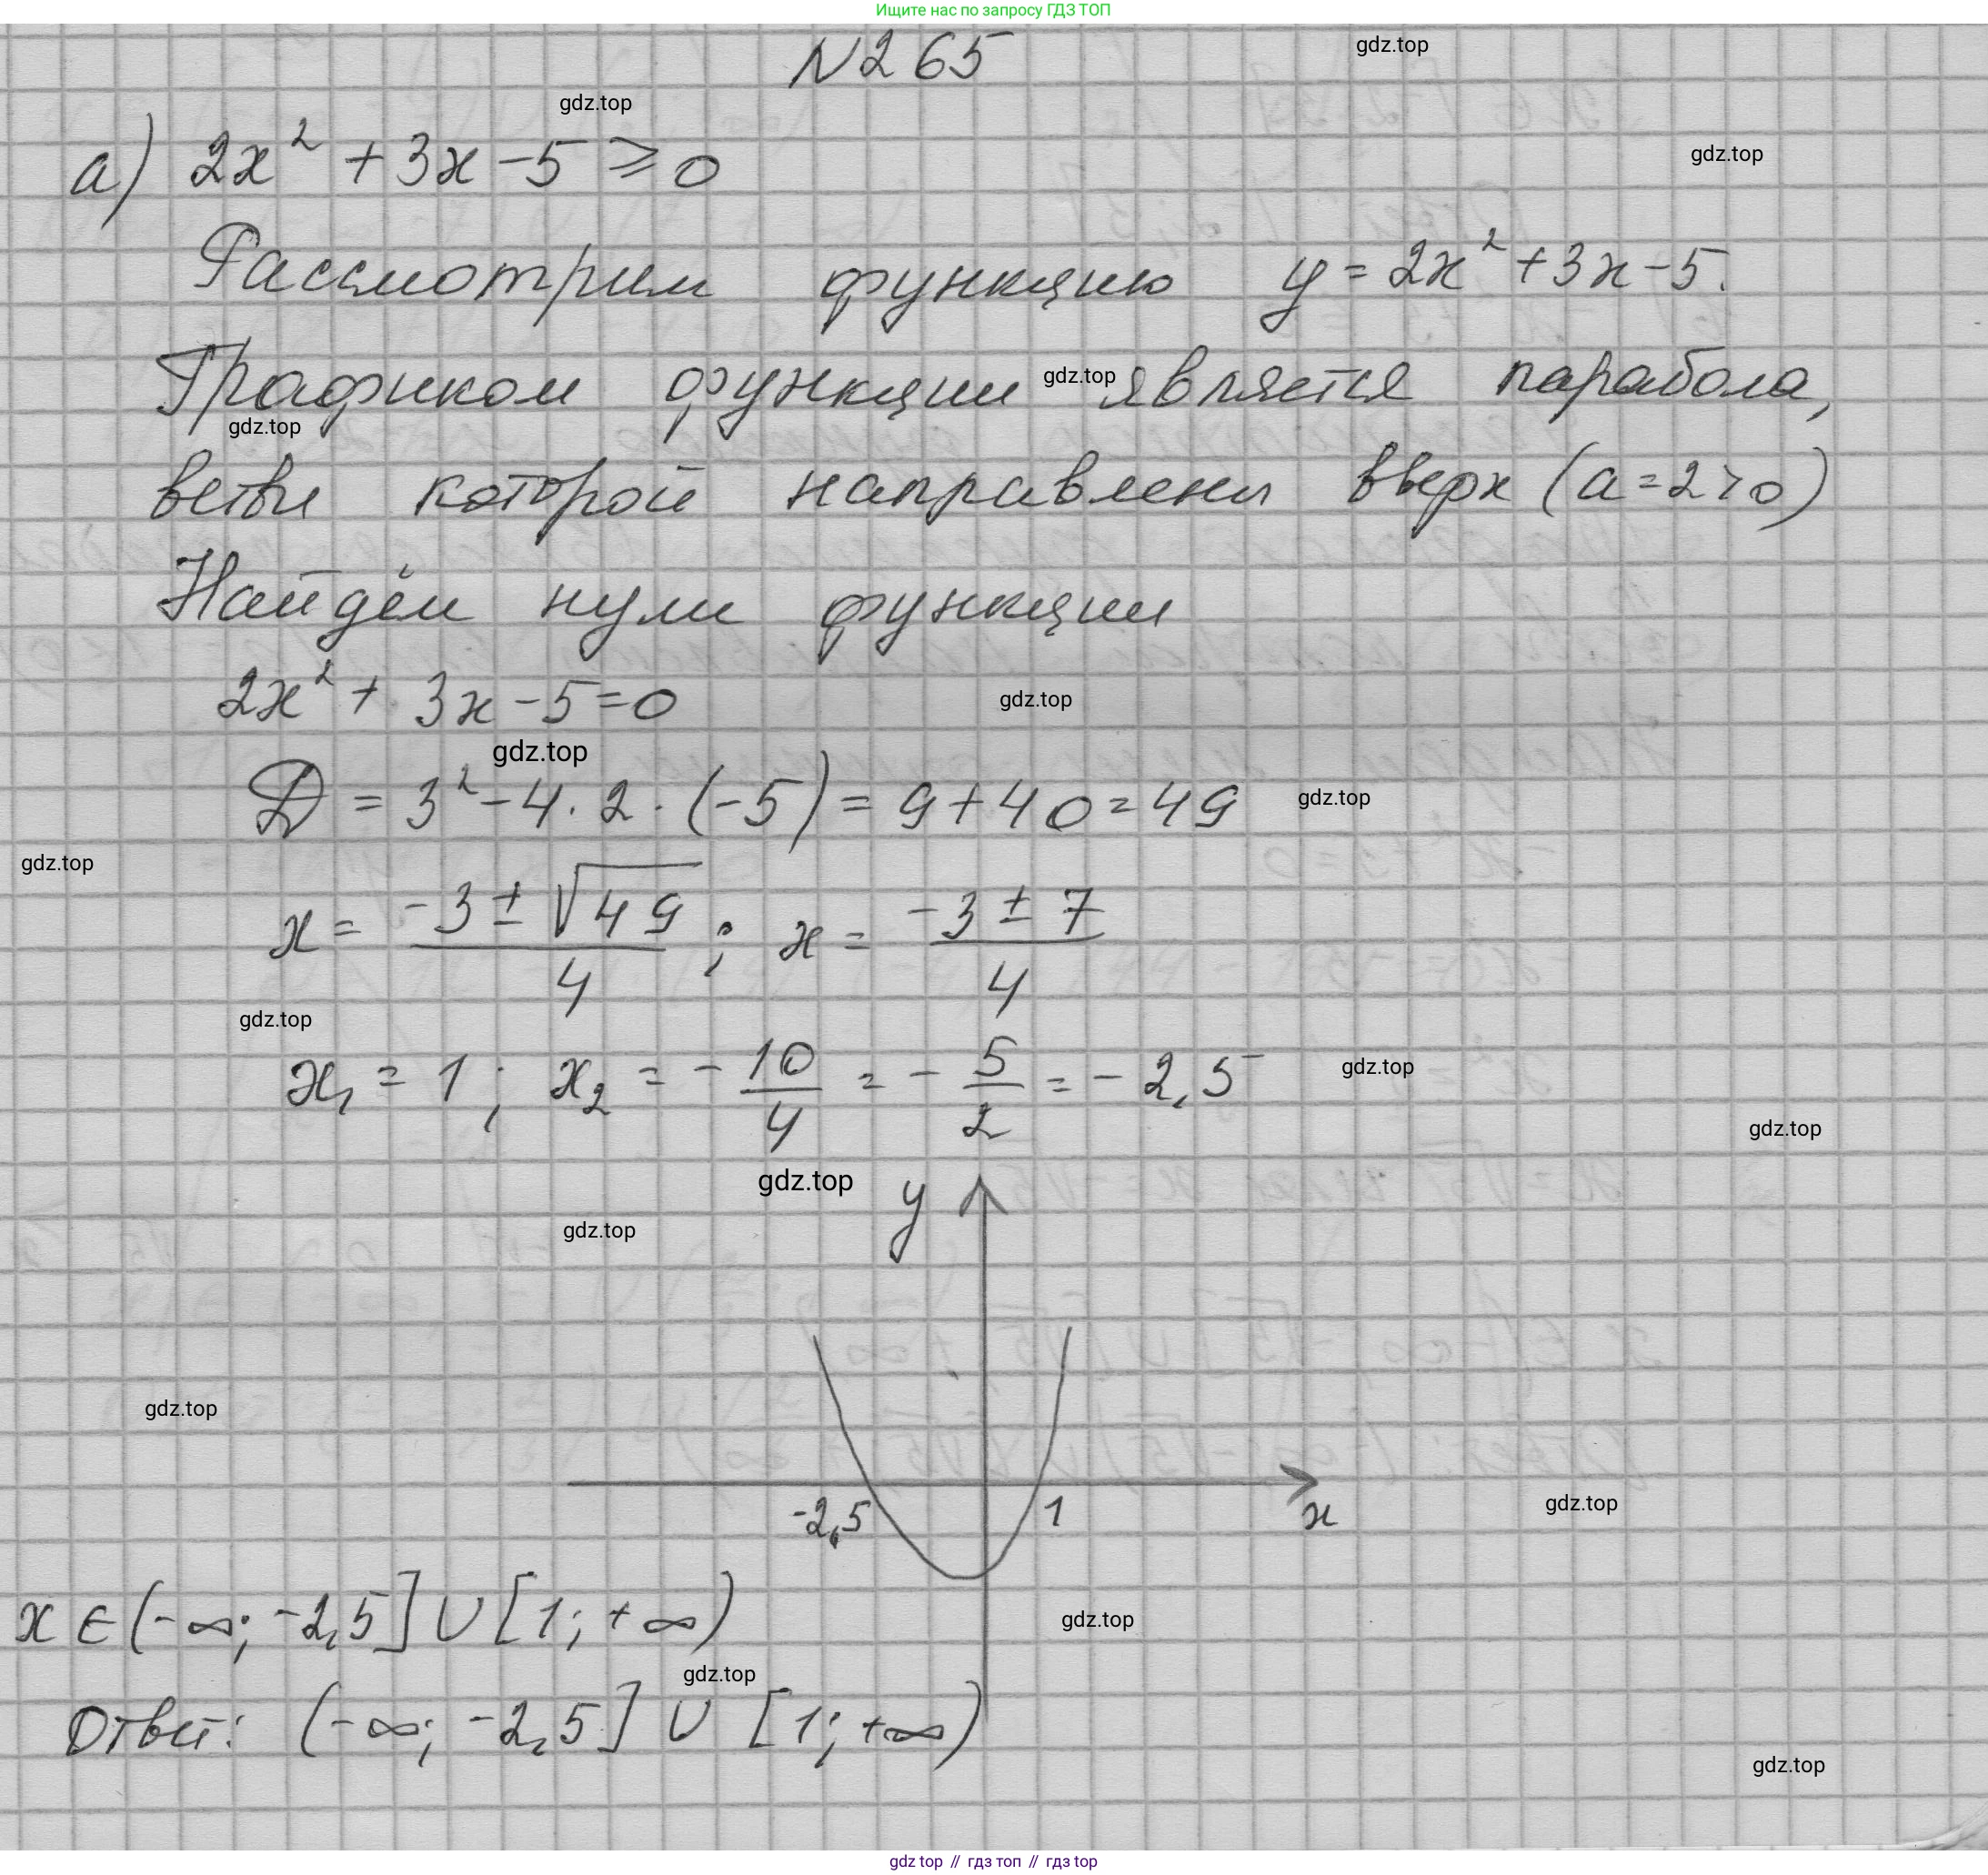 Ищите нас по запросу ГДЗ ТОП
N265
gdz.top
gdz.top
а) 2x² + 3x - 5 ⩾ 0
gdz.top
Рассмотрим функцию y = 2x² + 3x - 5.
Графиком функции является парабола,
gdz.top
gdz.top
ветви которой направлены вверх (a = 2 > 0)
Найдём нули функции
2x² + 3x - 5 = 0
gdz.top
gdz.top
D = 3² - 4 · 2 · (-5) = 9 + 40 = 49
gdz.top
gdz.top
x = (-3 ± √49)/4 ; x = (-3 ± 7)/4
gdz.top
x₁ = 1 ; x₂ = -10/4 = -5/2 = -2,5
gdz.top
gdz.top
gdz.top
y
gdz.top
gdz.top
-2,5 1 x
gdz.top
x ∈ (-∞; -2,5] ∪ [1; +∞)
gdz.top
gdz.top
Ответ: (-∞; -2,5] ∪ [1; +∞)
gdz.top
gdz top // гдз топ // гдз top